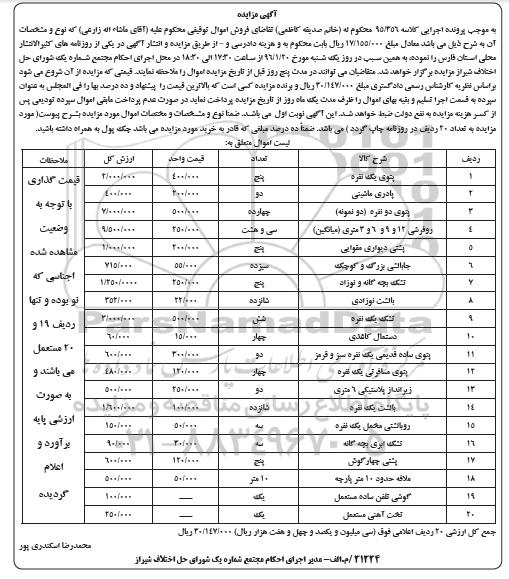 آگهی مزایده
به موجب پرونده اجرایی کلاسه ۹۵/۳۵۶ محکوم له (خانم صدیقه کاظمی) تقاضای فروش اموال توقیفی محکوم علیه (آقای ماشاء اله زارعی) که نوع و مشخصات
آن به شرح ذیل می باشد معادل مبلغ ۱۷/۱۵۵/۰۰۰ ریال بابت محکوم به و هزینه دادرسی و - از طریق مزایده و انتشار آگهی در یکی از روزنامه های کثیرالانتشار
محلی استان فارس را نموده، به همین سبب در روز یک شنبه مورخ ۹۶/۱/۲۰ از ساعت ۱۷:۳۰ الی ۱۸:۳۰ در محل اجرای احکام مجتمع شماره یک شورای حل
اختلاف شیراز مزایده برگزار خواهد شد. متقاضیان می توانند در مدت پنج روز قبل از تاریخ مزایده اموال را ملاحظه نمایند. قیمتی که مزایده از آن شروع می شود
براساس نظریه کارشناس رسمی دادگستری مبلغ ۳۰/۱۴۷/۰۰۰ ریال و برنده مزایده کسی است که بالاترین قیمت را پیشنهاد و ده درصد بها را فی المجلس به عنوان
سپرده به قسمت اجرا تسلیم و بقیه بهای اموال را ظرف مدت یک ماه روز از تاریخ مزایده پرداخت نماید در صورت عدم پرداخت مابقی اموال سپرده تودیعی پس
از کسر هزینه مزایده به نفع دولت ضبط خواهد شد. این آگهی نوبت اول می باشد. ضمنا نوع و مشخصات و مختصات اموال مورد مزایده بشرح پیوست(مورد
مزایده به تعداد ۲۰ ردیف در روزنامه چاپ گردد ) می باشد. ضمناً ده درصد مبلغی که قادر به خرید مورد مزایده می باشد چک پول به همراه داشته باشید.
لیست اموال متعلق به:
ردیف شرح کالا تعداد قیمت واحد ارزش کل ملاحظات
۱ پتوی یک نفره پنج ۴۰۰/۰۰۰ ۲/۰۰۰/۰۰۰ قیمت گذاری
۲ پادری ماشینی دو ۲۰۰/۰۰۰ ۴۰۰/۰۰۰ با توجه به
۳ پتوی دو نفره (دو نمونه) چهارده ۵۰۰/۰۰۰ ۷/۰۰۰/۰۰۰ وضعیت
۴ روفرشی ۱۲ و ۹ و ۶ و ۳ متری (میانگین) سی و هشت ۲۵۰/۰۰۰ ۹/۵۰۰/۰۰۰ مشاهده شده
۵ پشتی دیواری مقوایی پنج ۲۰۰/۰۰۰ ۱/۰۰۰/۰۰۰ اجناسی که
۶ جابالشی بزرگ و کوچک سیزده ۵۵/۰۰۰ ۷۱۵/۰۰۰ نو بوده و تنها
۷ تشک بچه گانه و نوزاد پنج ۲۵۰/۰۰۰ ۱/۲۵۰/۰۰۰۰ ردیف ۱۹ و
۸ بالشت نوزادی شانزده ۲۲/۰۰۰ ۳۵۲/۰۰۰ ۲۰ مستعمل
۹ تشک یک نفره شش ۵۰۰/۰۰۰ ۳/۰۰۰/۰۰۰ می باشند و
۱۰ دستمال کاغذی چهار ۱۵/۰۰۰ ۶۰/۰۰۰ به صورت
۱۱ پتوی ساده قدیمی یک نفره سبز و قرمز دو ۳۰۰/۰۰۰ ۶۰۰/۰۰۰ ارزشی پایه
۱۲ پتوی مسافرتی یک نفره چهار ۱۲۰/۰۰۰ ۴۸۰/۰۰۰ برآورد و
۱۳ زیرانداز پلاستیکی ۶ متری دو ۲۵۰/۰۰۰ ۵۰۰/۰۰۰ اعلام
۱۴ بالشت یک نفره شانزده ۱۰۰/۰۰۰ ۱/۶۰۰/۰۰۰ گردیده
۱۵ روبالشتی مخمل یک نفره سه ۵۰/۰۰۰ ۱۵۰/۰۰۰
۱۶ تشک ابری بچه گانه سه ۳۰/۰۰۰ ۹۰/۰۰۰
۱۷ پشتی چهارگوش پنج ۱۲۰/۰۰۰ ۶۰۰/۰۰۰
۱۸ ملافه حدود ۱۰ متر پارچه ۱۰ متر ۵۰/۰۰۰ ۵۰۰/۰۰۰
۱۹ گوشی تلفن ساده مستعمل یک — ۱۰۰/۰۰۰
۲۰ تخت آهنی مستعمل یک — ۲۵۰/۰۰۰
جمع کل ارزشی ۲۰ ردیف اعلامی فوق (سی میلیون و یکصد و چهل و هفت هزار ریال) ۳۰/۱۴۷/۰۰۰ ریال
محمدرضا اسکندری پور
۲۱۲۲۴ /م.الف- مدیر اجرای احکام مجتمع شماره یک شورای حل اختلاف شیراز
ParsNamadData
پایگاه اطلاع رسانی مناقصه و مزایده
۰۲۱-۸۸۳۴۹۶۷۰-۵